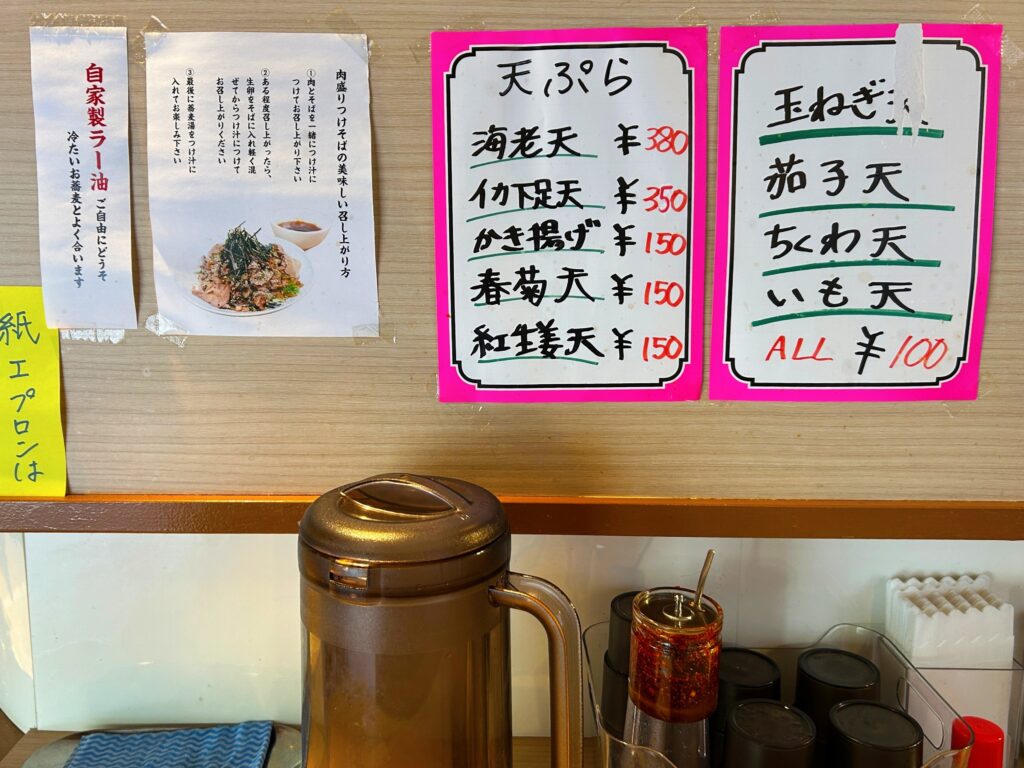 自家製ラー油 ご自由にどうそ
冷たいお蕎麦とよく合います
肉盛りつけそばの美味しい召し上がり方
①肉とそばを一緒につけ汁に
つけてお召し上がり下さい
②ある程度召し上がったら、
生卵をそばに入れ軽く混
ぜてからつけ汁につけて
お召し上がりください
③最後に蕎麦湯をつけ汁に
入れてお楽しみ下さい
紙エプロンは
天ぷら
海老天 ¥380
イカ下足天 ¥350
かき揚げ ¥150
春菊天 ¥150
紅生姜天 ¥150
玉ねぎ
茄子天
ちくわ天
いも天
ALL ¥100